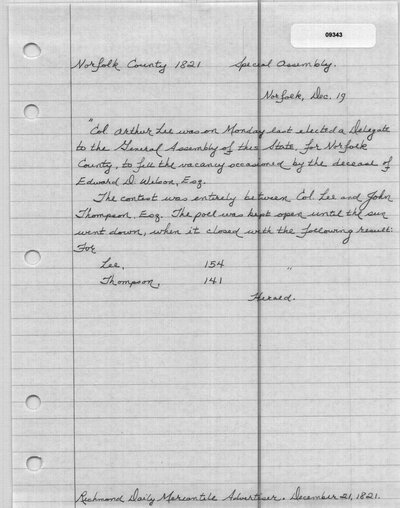 09343
Norfolk County 1821 Special Assembly.
Norfolk, Dec. 19
"Col Arthur Lee was on Monday last elected a Delegate
to the General Assembly of this State, for Norfolk
County, to fill the vacancy occasioned by the decease of
Edward D. Wilson, Esq.
The contest was entirely between Col Lee and John
Thompson, Esq. The poll was kept open until the sun
went down, when it closed with the following result:
For
Lee, 154 "
Thompson, 141
Herald.
Richmond Daily Mercantile Advertiser. December 21, 1821.